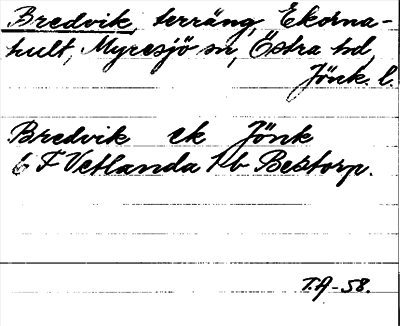 Bredvik, terräng, Ekorna-
hult, Myresjö sn, Östra hd,
Jönk. l.
Bredvik ek Jönk
6 F Vetlanda 1 b Bestorp.
T.A-58.